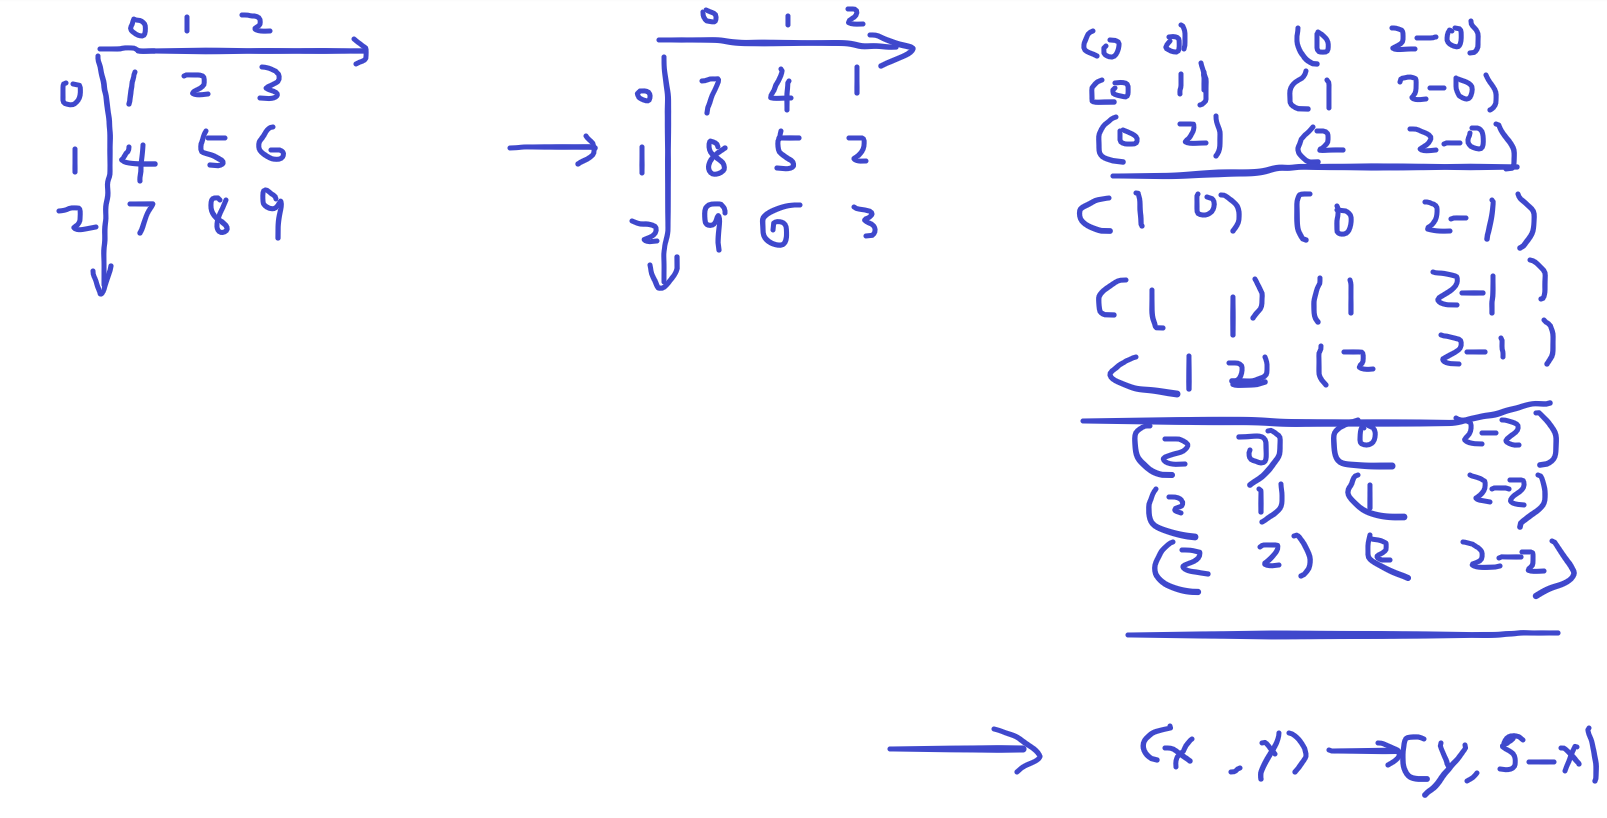 0 1 2
0 1 2 3
1 4 5 6
2 7 8 9
0 1 2
0 7 4 1
1 8 5 2
2 9 6 3
(0 0) (0 2-0)
(0 1) (1 2-0)
(0 2) (2 2-0)
(1 0) (0 2-1)
(1 1) (1 2-1)
(1 2) (2 2-1)
(2 0) (0 2-2)
(2 1) (1 2-2)
(2 2) (2 2-2)
(x, y) → (y, S-x)